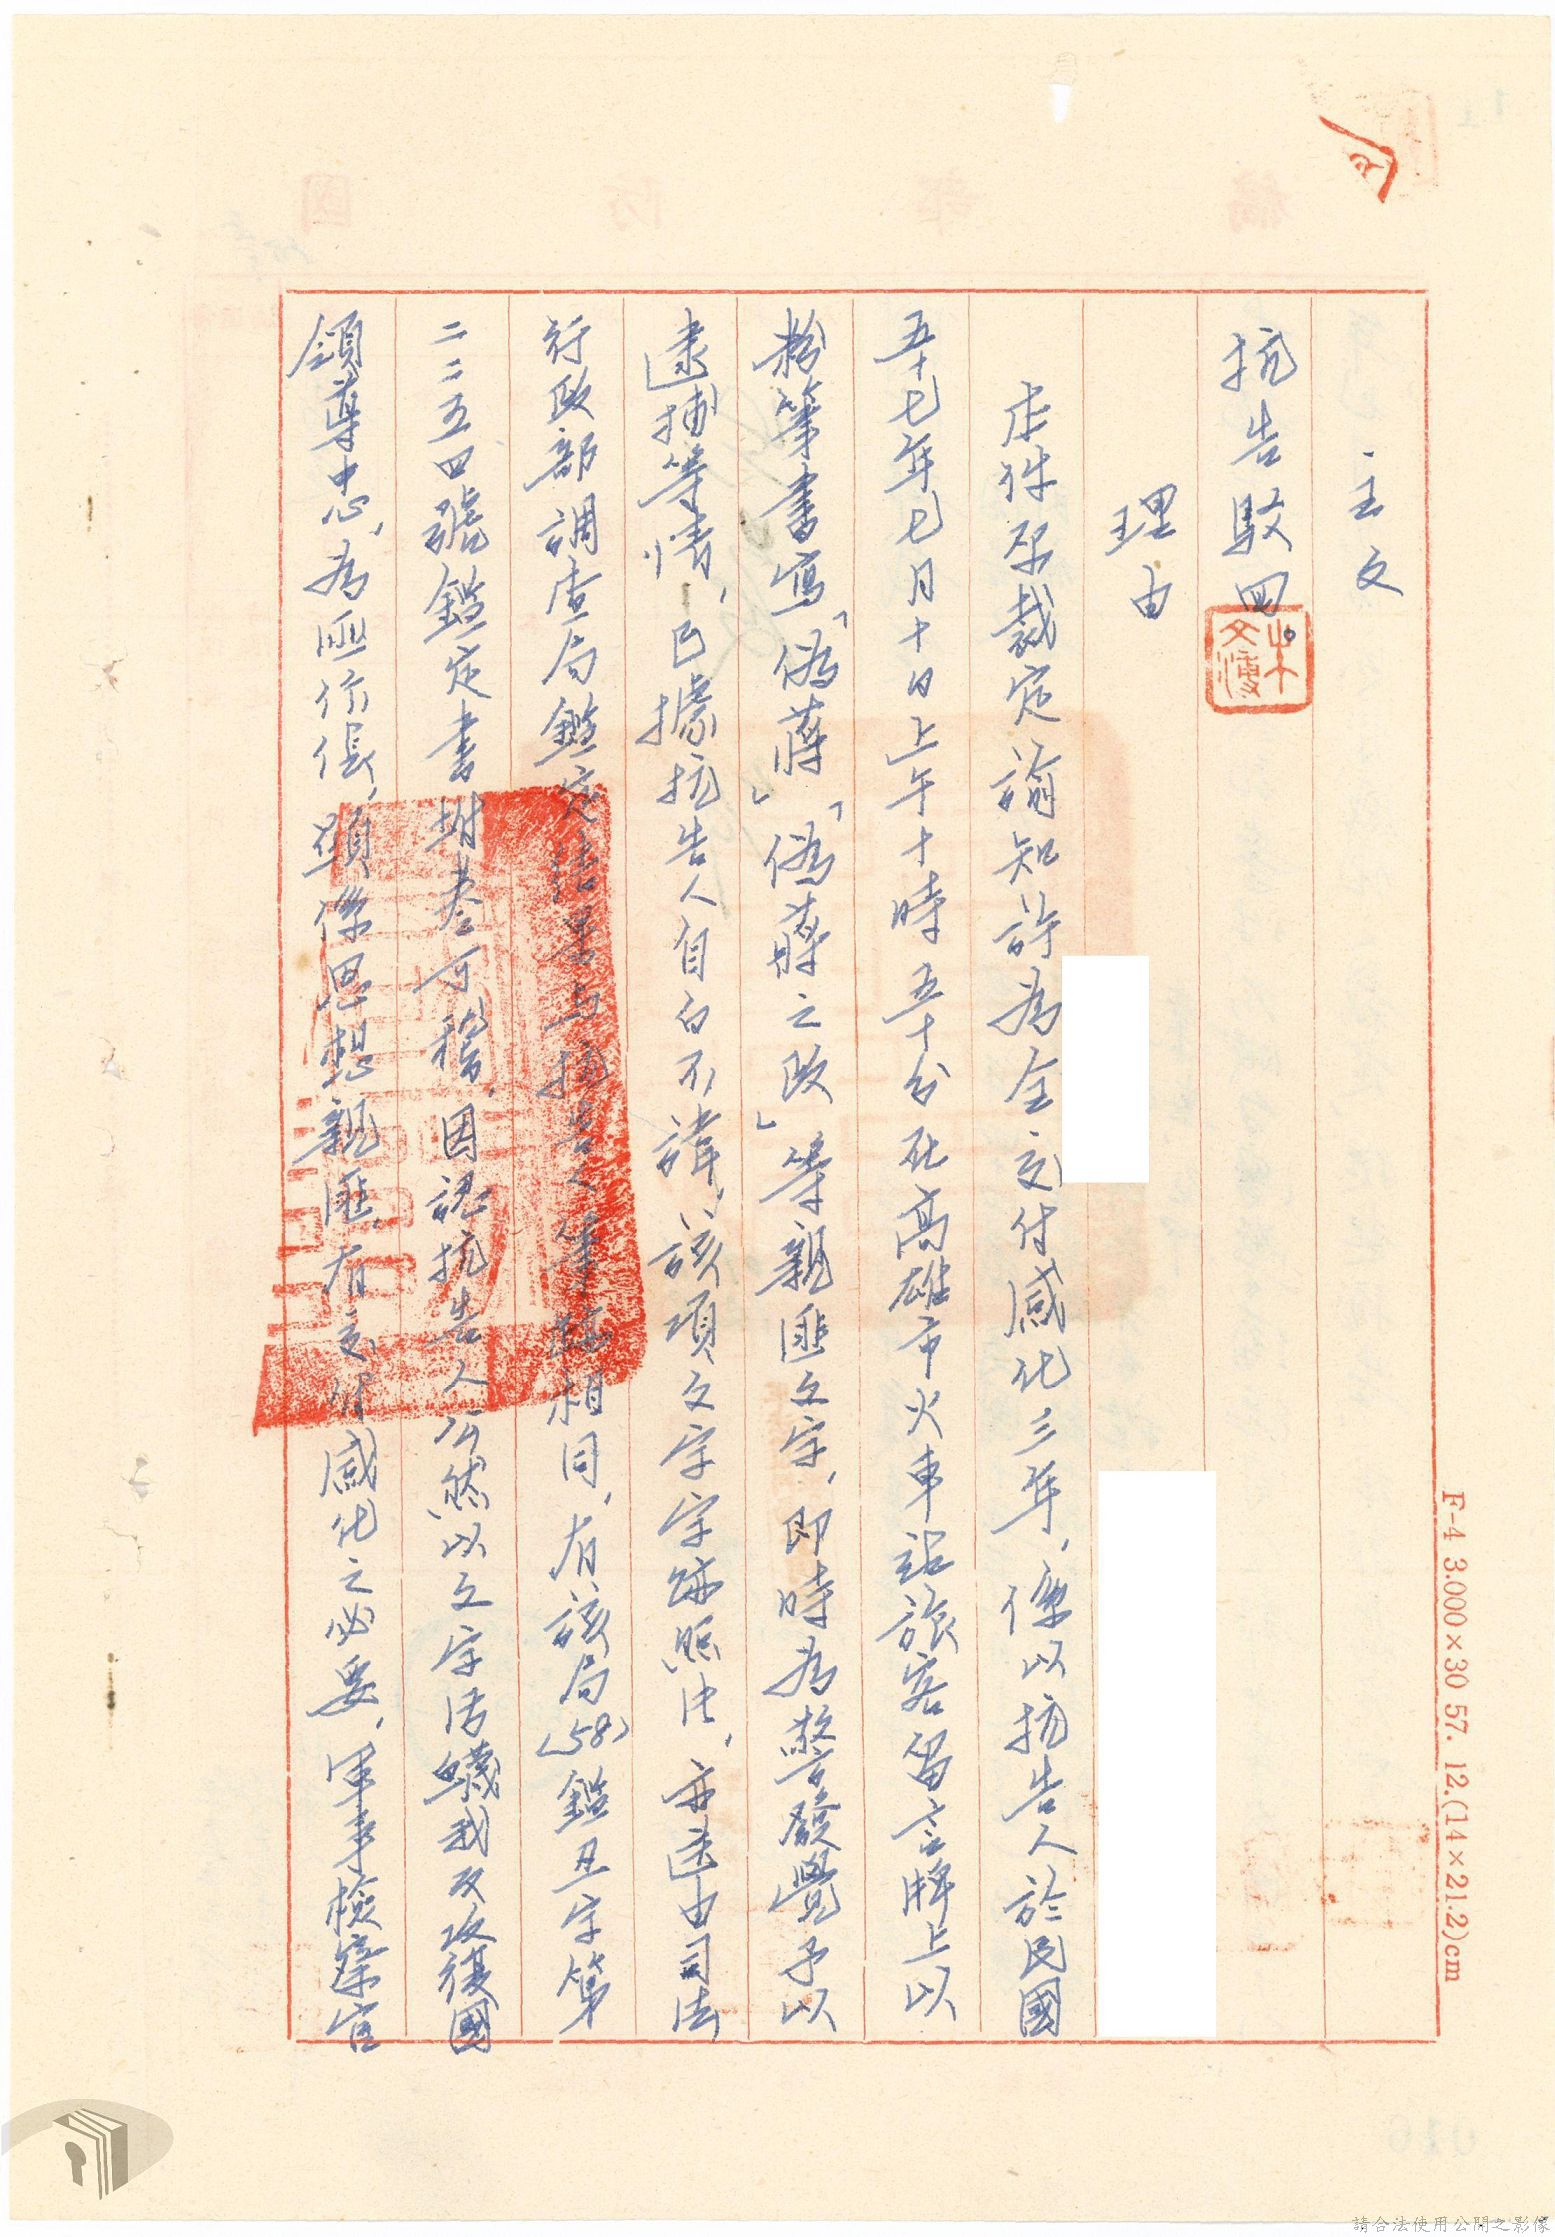 主文
抗告駁回。
理由
本件原裁定諭知許為全交付感化三年，係以抗告人於民國
五十七年七月十日上午十時五十分在高雄市火車站旅客留言牌上以
粉筆書寫「偽蔣」「偽蔣之政」等親匪文字，即時為警發覺予以
逮捕等情，已據抗告人自白不諱，該項文字字跡照片，亦送由司法
行政部調查局鑑定結果與抗告人筆跡相同，有該局(58)鑑丑字第
二二五四號鑑定書附卷可稽，因認抗告人公然以文字污衊我反攻復國
領導中心，為匪張，顯係思想親匪，有交付感化之必要，軍事檢察官
F-4 3.000×30 57. 12.(14×21.2)cm
請合法使用公開之影像